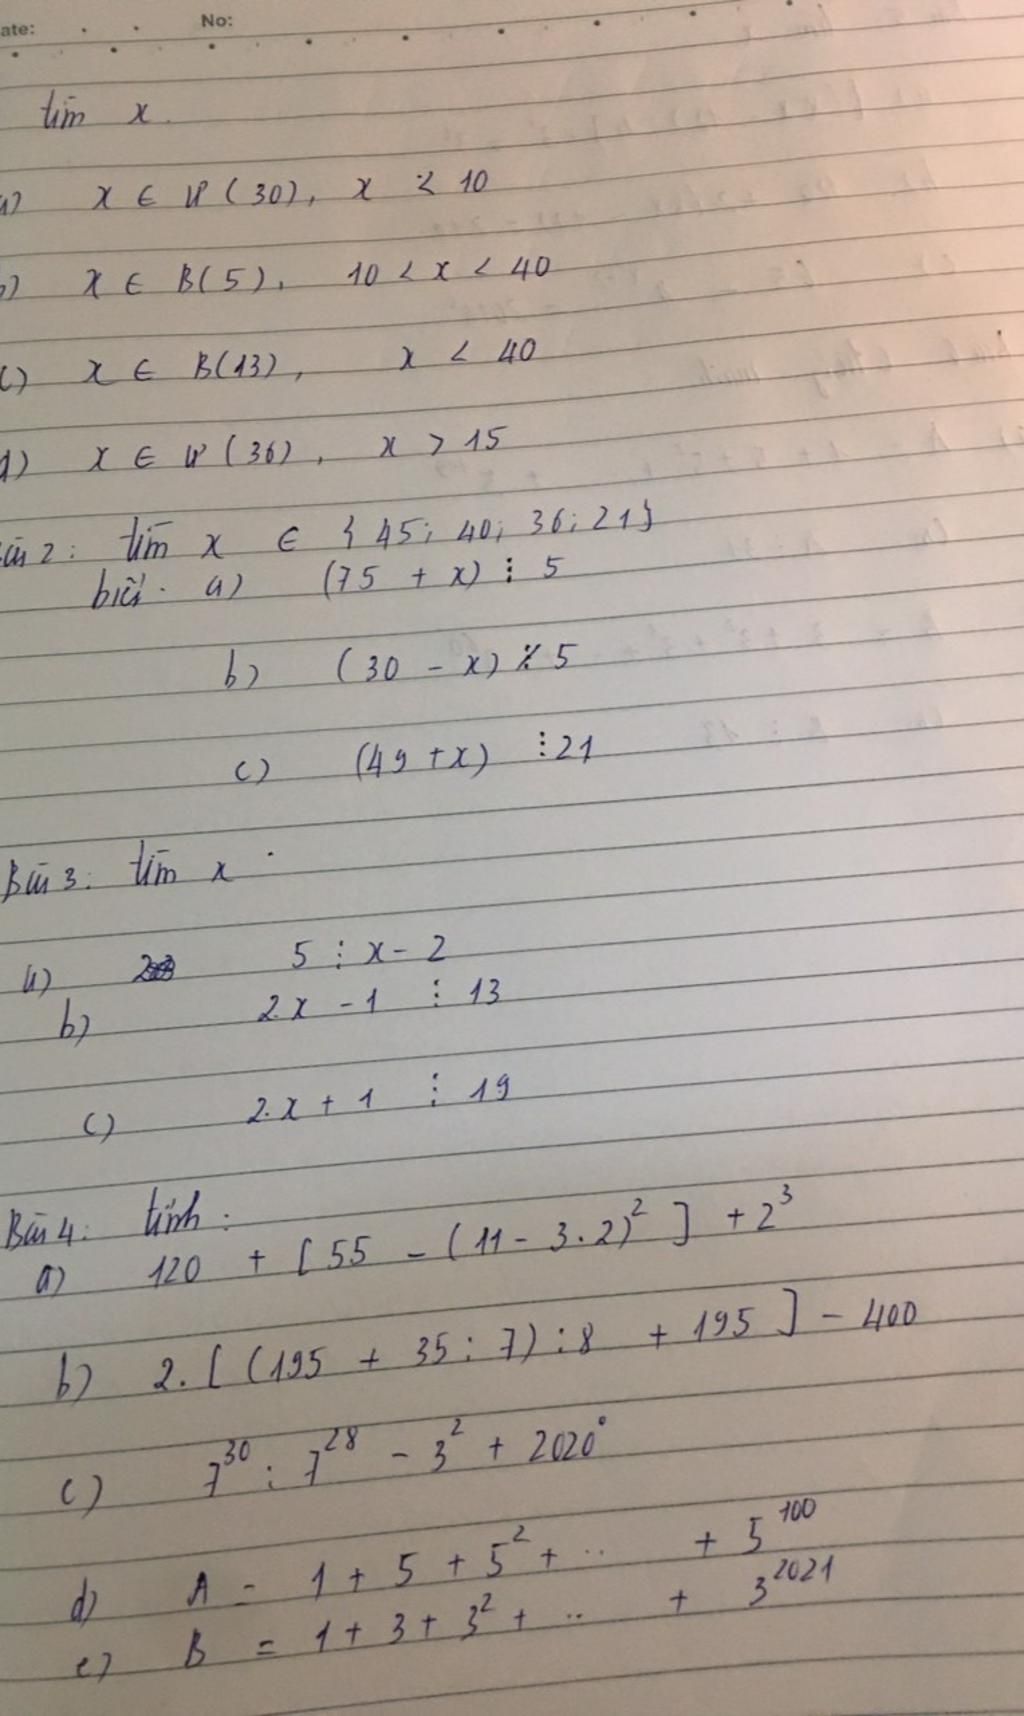 ate: No:
tìm x.
a) x ∈ Ư(30), x < 10
b) x ∈ B(5), 10 < x < 40
c) x ∈ B(13), x < 40
d) x ∈ Ư(36), x > 15
Bài 2: tìm x ∈ {45; 40; 36; 21}
biết. a) (75 + x) ⋮ 5
b) (30 - x) ⋮̸ 5
c) (49 + x) ⋮ 21
Bài 3: tìm x
a) 5 ⋮ x - 2
b) 2.x - 1 ⋮ 13
c) 2.x + 1 ⋮ 19
Bài 4: tính:
a) 120 + [55 - (11 - 3.2)² ] + 2³
b) 2.[ (195 + 35 : 7) : 8 + 195 ] - 400
c) 7³⁰ : 7²⁸ - 3² + 2020⁰
d) A = 1 + 5 + 5² + .. + 5¹⁰⁰
e) B = 1 + 3 + 3² + .. + 3²⁰²¹